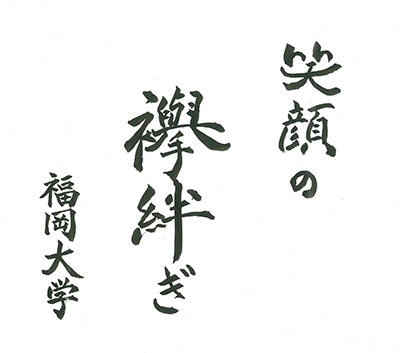 笑顔の
襷絆ぎ
福岡大学